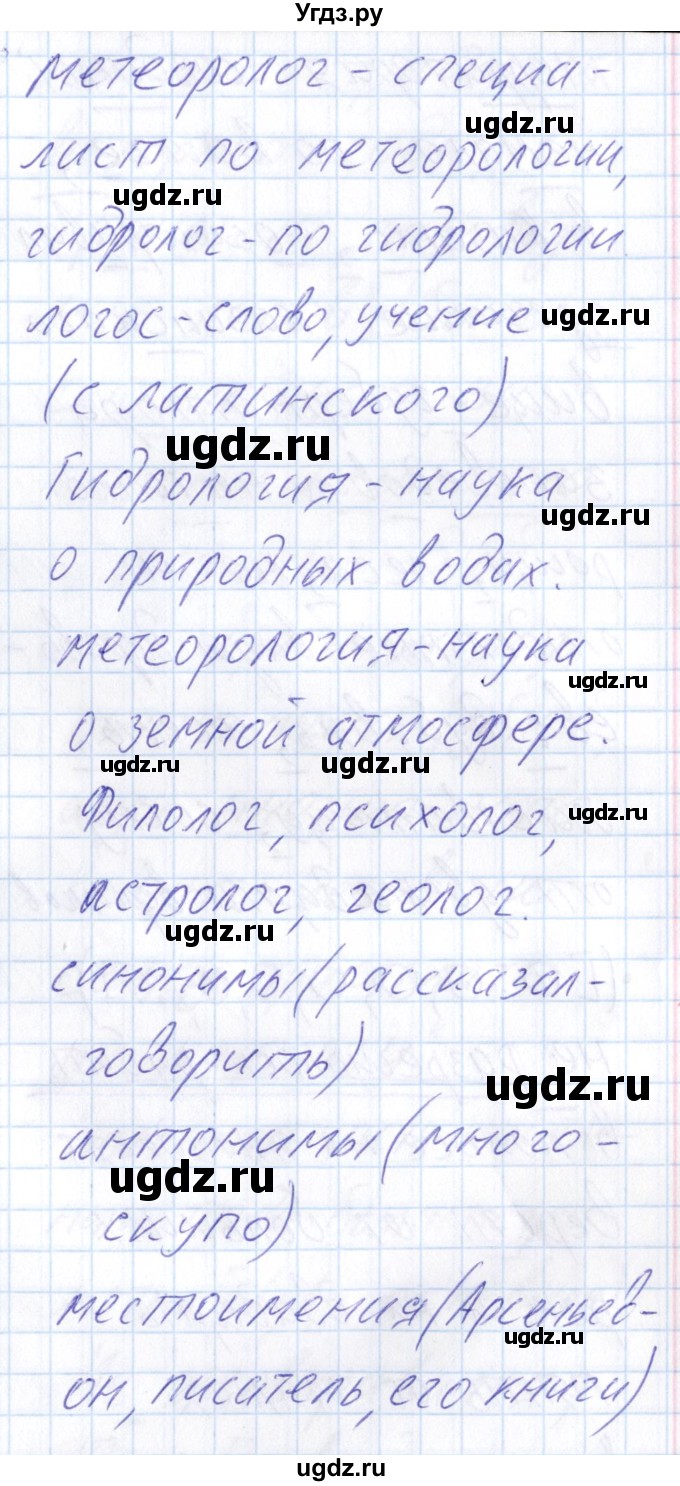 Угдз.ру
метеоролог - специа-
ugdz.ru
лист по метеорологии,
ugdz.ru
гидролог - по гидрологии.
логос - слово, учение
ugdz.ru
(с латинского)
ugdz.ru
Гидрология - наука
ugdz.ru
о природных водах.
метеорология - наука
ugdz.ru
о земной атмосфере.
ugdz.ru ugdz.ru
Филолог, психолог,
ugdz.ru
астролог, геолог.
ugdz.ru
синонимы (рассказал-
говорить)
ugdz.ru
антонимы (много -
ugdz.ru
скупо)
местоимения (Арсеньев-
ugdz.ru
он, писатель, его книги)
ugdz.ru